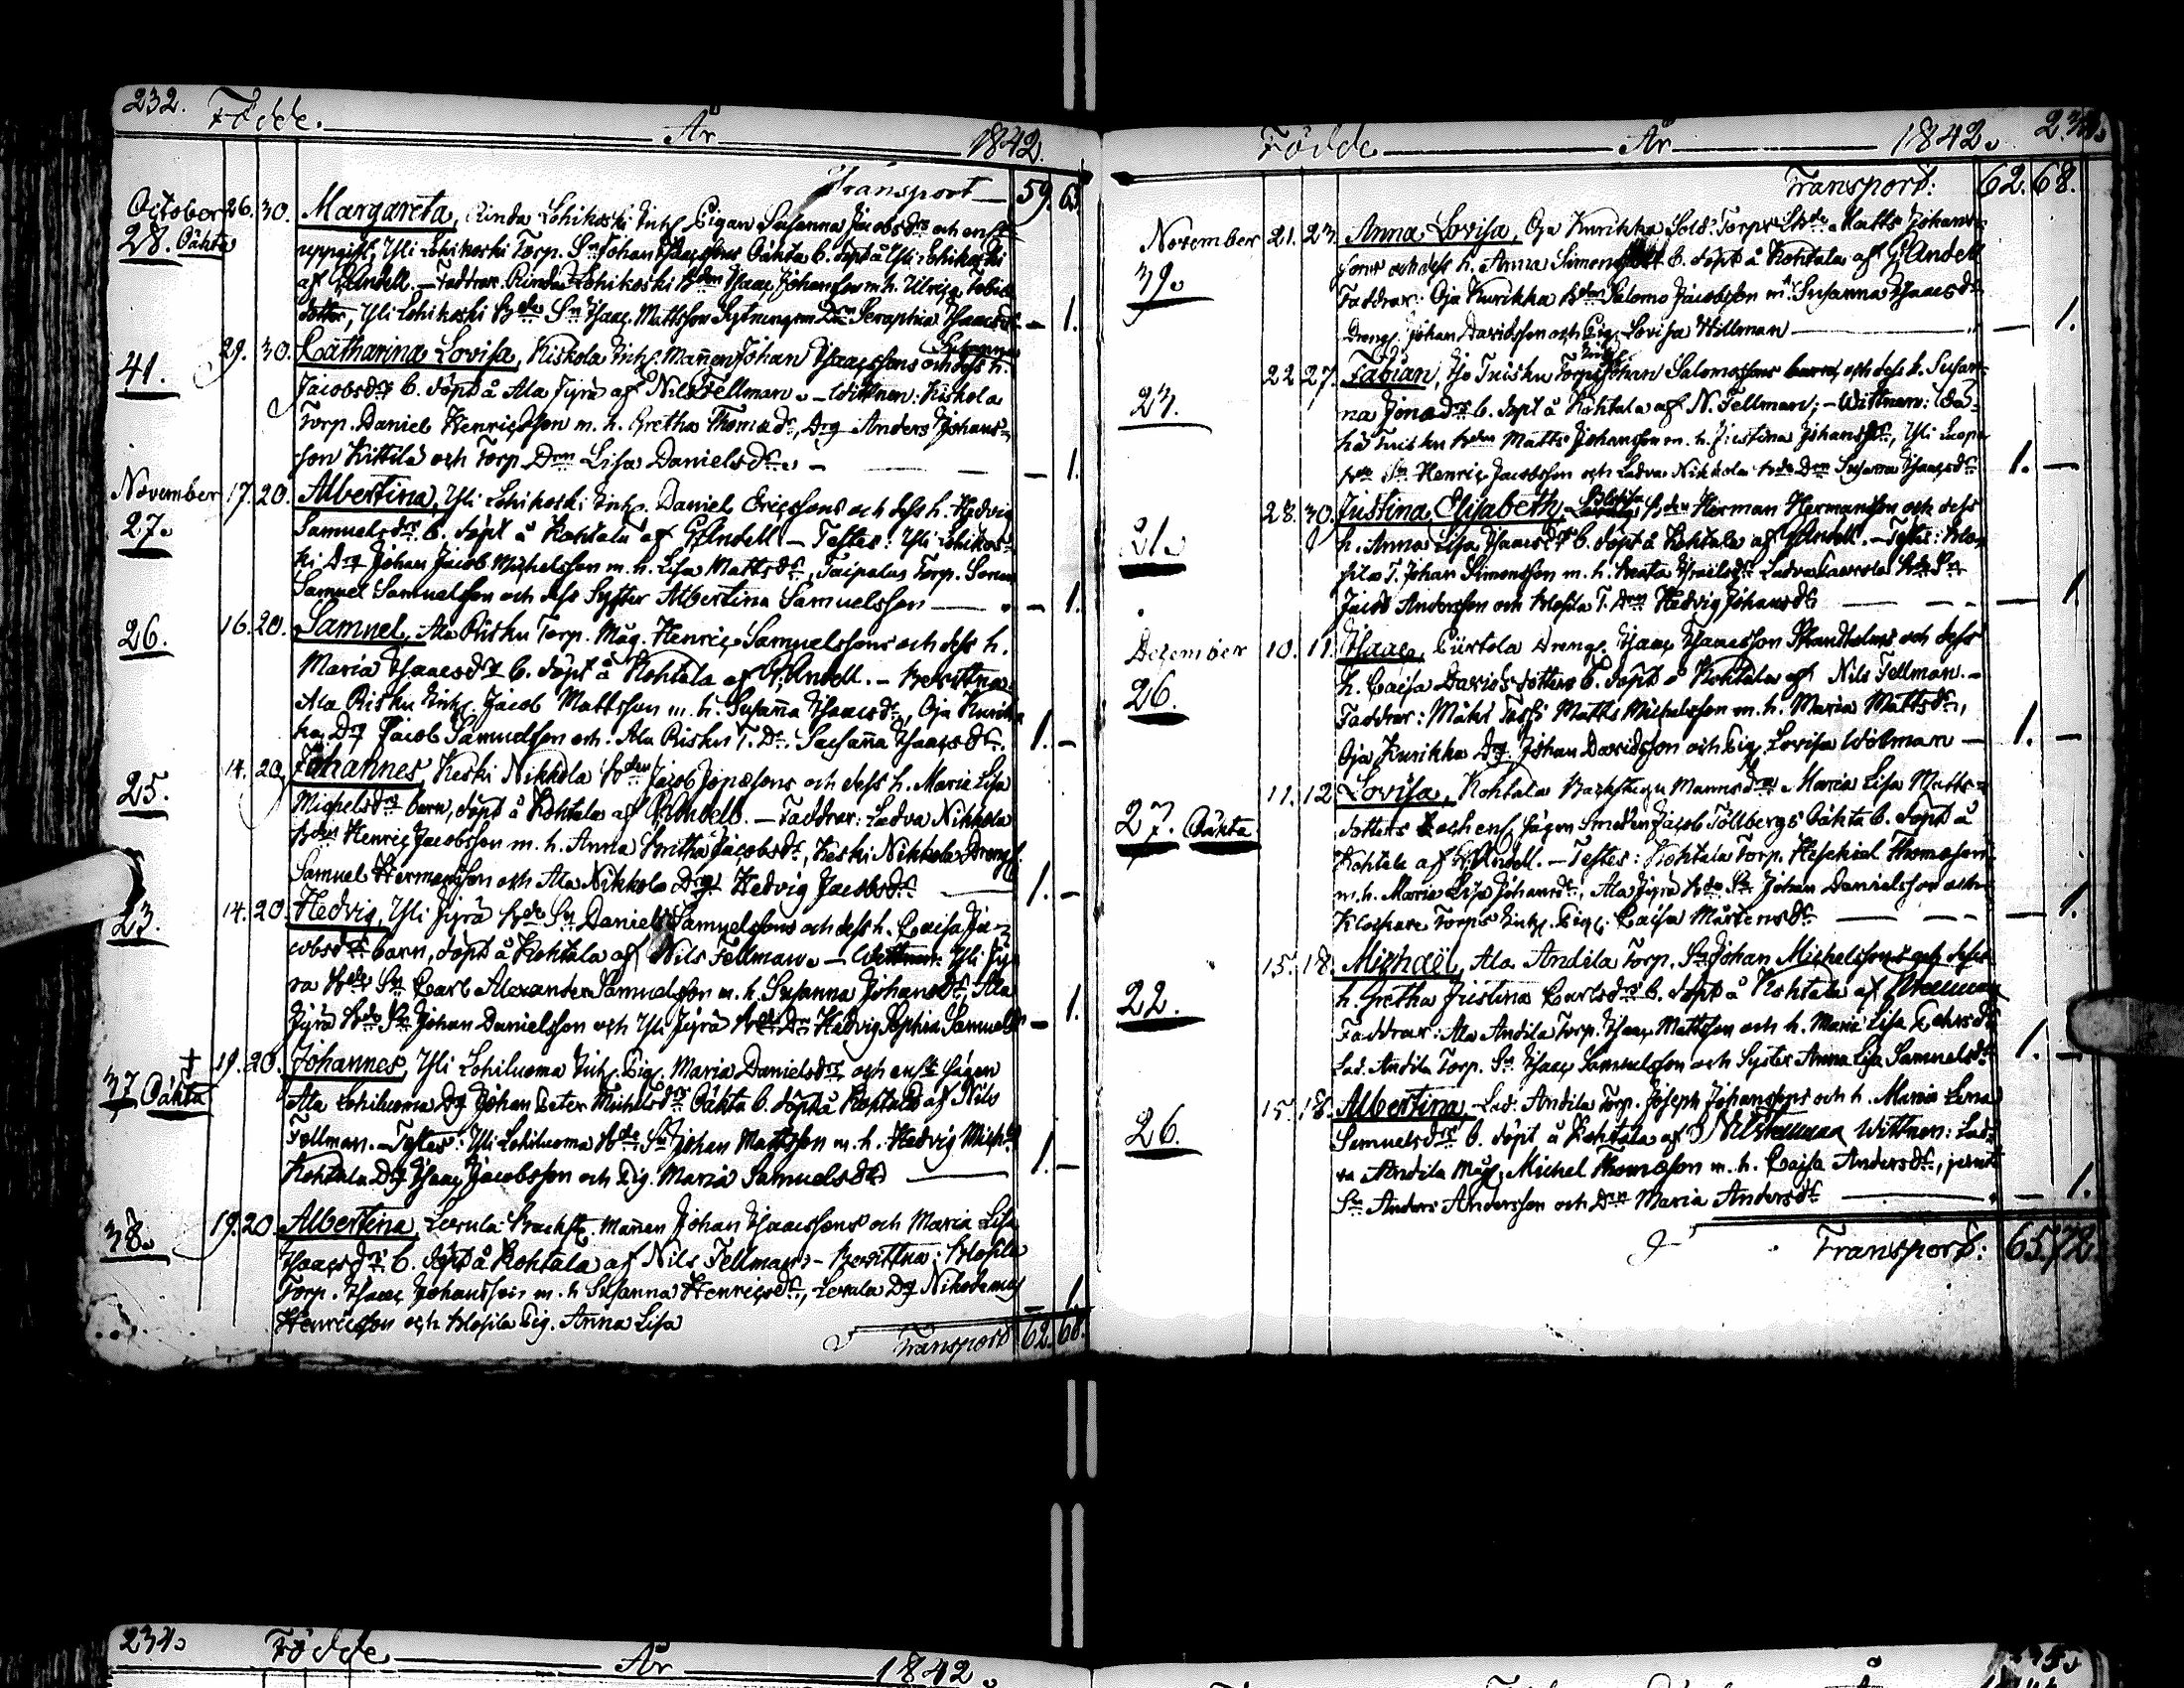 232. Födde. År 1842.
Transport 59. 63
October 26. 30. Margareta, Rinda Lohikoski Inh. Pigan Susanna Jacobsdrs och enl.
28. Oäkta uppgift, Yli Lohikoski Torp. Sn Johan Isaacssons Oäkta b. döpt å Yli Lohikoski
af G. Andell. — Faddrar. Rinda Lohikoski Bdn Isaac Johansson m. h. Ulrica Tobias
dotter, Yli Lohikoski Bde Sn Isaac Mattsson Sytningsm Drn Seraphia Isaacsdr — 1.
29. 30. Catharina Lovisa, Kiskola Inh. Mannen Johan Isaacssons och dess h. Susanna
41. Jacobsdrs b. döpt å Ala Jyrä af Nils Fellman. — Wittnen: Kiskola
Torp. Daniel Henricsson m. h. Gretha Thomædr, Drg Anders Johans-
son Kittilä och Torp. Drn Lisa Danielsdr. — — 1.
November 17. 20. Albertina, Yli Lohikoski Inh. Daniel Ericssons och dess h. Hedvig
27. Samuelsdrs b. döpt å Kohtala af G. Andell — Testes: Yli Lohikos-
ki Drg Johan Jacob Michelsson m. h. Lisa Mattsdr, Taipalus Torp. Sonen
Samuel Samuelsson och dess Syster Albertina Samuelsson — — 1.
26. 16. 20. Samuel, Ala Risku Torp. Måg. Henric Samuelssons och dess h.
Maria Isaacsdrs b. döpt å Kohtala af G. Andell. — Bevittna:
Ala Risku Inh. Jacob Mattsson m. h. Susanna Isaacsdr, Oja Kurik-
ka Drg Jacob Samuelsson och Ala Risku T. Dr. Susanna Isaacsdr. 1. —
14. 20. Johannes, Keski Nikkola Bden Jacob Jonæsons och dess h. Maria Lisa
25. Michelsdrs barn, döpt å Kohtala af G. Andell. — Faddrar: Ladva Nikkola
Bdn Henric Jacobsson m. h. Anna Britha Jacobsdr, Keski Nikkola Drengs.
Samuel Hermansson och Ala Nikkola Drg. Hedvig Jacobsdr — 1. —
23. 14. 20. Hedvig, Yli Jyrä Bde Sn Daniel Samuelssons och dess h. Caisa Ja-
cobsdrs barn, döpt å Kohtala af Nils Fellman. — Wittnen: Yli Jy-
rä Bde Sn Carl Alexander Samuelsson m. h. Susanna Johansdr, Ala
Jyrä Bde Sn Johan Danielsson och Yli Jyrä Bde Dr Hedvig Sophia Samuelsdr — 1.
† 19. 20. Johannes, Yli Lohiluoma Inh. Pig. Maria Danielsdrs och enl. sägen
37 Oäkta Ala Lohiluoma Dg Johan Peter Michelsdrs Oäkta b. döpt å Kohtala af Nils
Fellman. — Testes: Yli Lohiluoma Bde Sn Johan Mattsson m. h. Hedvig Michelsdr
Kohtala Dg Isaac Jacobsson och Pig. Maria Samuelsdr — 1. —
38. 19. 20 Albertina, Lerula Backst. Mannen Johan Isaacssons och Maria Lisa
Isaacsdrs b. döpt å Kohtala af Nils Fellman. — Bevittna: Klosila
Torp. Isaac Johansson m. h Susanna Henricsdr, Lerula Dg Nikodemus
Henricsson och Klosila Pig. Anna Lisa — 1
Transport 62. 68.
Födde År 1842. 233.
Transport: 62. 68.
November 21. 23. Anna Lovisa, Oja Kurikka Sold. Torps Matts Johans-
39. sons och dess h. Anna Simonsdrs b. döpt å Kohtala af G. Andell
Faddrar: Oja Kurikka Bdn Salomo Jacobsson m. h. Susanna Isaacsdr
Drengs. Johan Davidsson och Pig. Lovisa Willman — — 1.
22 27. Fabian, Iso Tuisku Torps Inh. Johan Salomossons barn, och dess h. Susan-
23. na Jonædrs b. döpt å Kohtala af N. Fellman; — Wittnen: Wä-
hä Tuisku Bdn Matts Johansson m. h. Justina Johansdr, Yli
Bde Sn Henric Jacobsson och Ladva Nikkola Bde Drn Susanna Isaacsdr 1. —
28. 30. Justina Elisabeth, Klosila Bden Herman Hermansson och dess
21. h. Anna Lisa Isaacsdrs b. döpt å Kohtala af G. Andell. — Testes: Klo-
sila T. Johan Simonsson m. h. Beata Israelsdr Ladva Laurola Bde Sn
Jacob Andersson och Klosila T. Drn Hedvig Johansdr — — 1
December 10. 11. Isaac, Piirtola Drengs. Isaac Isaacsson Strandholms och dess
26. h. Caisa Davidsdotters b. döpt å Kohtala af Nils Fellman. —
Faddrar: Mäki Passi Matts Michelsson m. h. Maria Mattsdr,
Oja Kurikka Dg. Johan Davidsson och Pig. Lovisa Wilman — 1. —
11. 12 Lovisa, Kohtala Backstugu Mannsdrs Maria Lisa Matts-
27. Oäkta dotters och enl. sägen Smeden Jacob Tollbergs Oäkta b. döpt å
Kohtala af G. Andell. — Testes: Kohtala Torp. Heskiel Thomæson
m. h. Maria Lisa Johansdr, Ala Jyrä Bde Sn Johan Danielsson och
Klockare Torps Inh. Pig. Caisa Mårtensdr — — 1.
15. 18. Michaël, Ala Andila Torp. Sn Johan Michelssons och dess
22. h. Gretha Justina Carlsdrs b. döpt å Kohtala af N Fellman
Faddrar: Ala Andila Torp. Isaac Mattsson och h. Maria Lisa
Lad. Andila Torp. Sn Isaac Samuelsson och Syster Anna Lisa Samuelsdr 1. —
15. 18. Albertina, Lad. Andila Torp. Joseph Johanssons och h. Maria Lena
26. Samuelsdrs b. döpt å Kohtala af Nils Fellman Wittnen: Lad-
va Andila Måg. Michel Thomæson m. h. Caisa Andersdr, jemte
Sn Anders Andersson och Drn Maria Andersdr — — 1.
Transport: 65. 72.
234. Födde År 1842.